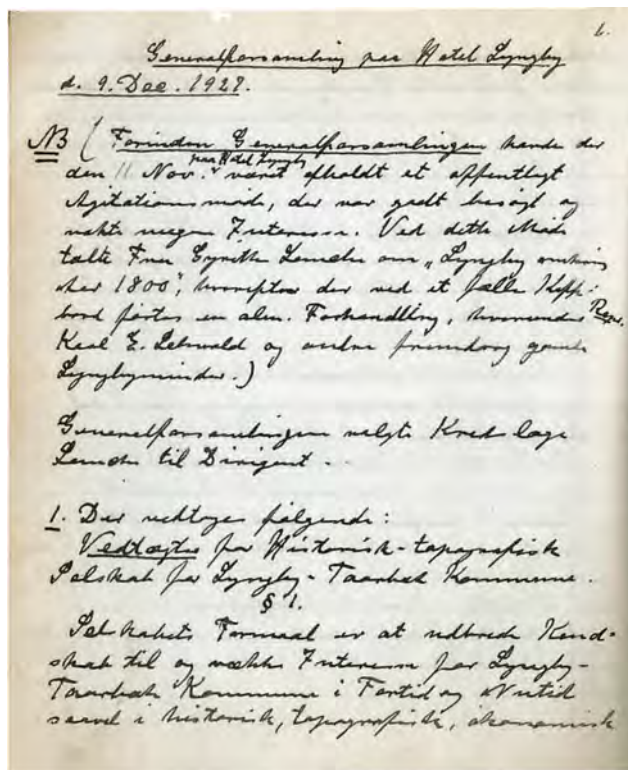 6.
Generalforsamling paa Hotel Lyngby
d. 9. Dec. 1927.
NB ( Forinden Generalforsamlingen havde der
den 11 Nov. paa Hotel Lyngby været afholdt et offentligt
Agitationsmøde, der var godt besøgt og
vakte megen Interesse. Ved dette Møde
talte Fru Gyrithe Lemche om „Lyngby omkring
aar 1800", hvorefter der ved et fælles Kaffe-
bord førtes en alm. Forhandling, hvorunder Repr.
Karl E. og andre fremdrog gamle
Lyngbyminder.)
Generalforsamlingen valgte Kredslæge
Lemche til Dirigent.
1. Der vedtoges følgende:
Vedtægter for Historisk-topografisk
Selskab for Lyngby-Taarbæk Kommune.
§ 1.
Selskabets Formaal er at udbrede Kend-
skab til og vække Interesse for Lyngby-
Taarbæk Kommune i Fortid og Nutid
saavel i historisk, topografisk, økonomisk